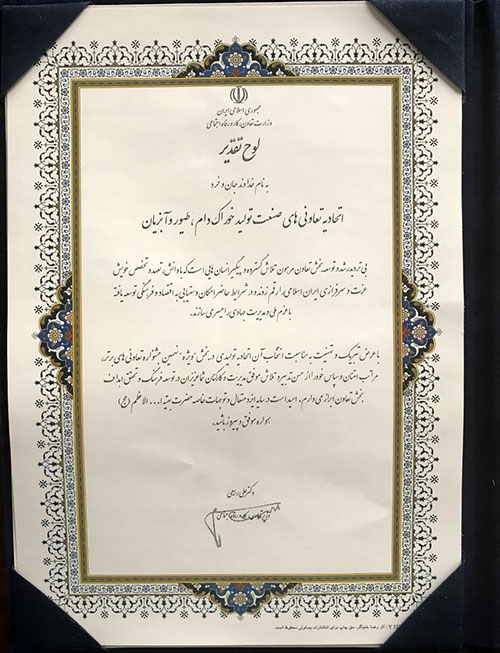 جمهوری اسلامی ایران
وزارت تعاون، کار و رفاه اجتماعی
لوح تقدیر
به نام خداوند جان و خرد
اتحادیه تعاونی های صنعت تولید خوراک دام، طیور و آبزیان
بی تردید رشد و توسعه بخش تعاون مرهون تلاش گسترده و پیگیر انسان هایی است که با دانش، تعهد و تخصص خویش
عزت و سرفرازی ایران اسلامی را رقم زدند و در شرایط حاضر امکان دستیابی به اقتصاد و فرهنگی توسعه یافته
با عزم ملی و مدیریت جهادی را میسر می سازند.
با عرض تبریک و تهنیت به مناسبت انتخاب آن اتحادیه تولیدی در بخش ویژه، نهمین جشنواره تعاونی های برتر،
مراتب امتنان و سپاس خود را از حسن تدبیر و تلاش موفق مدیریت و کارکنان شما عزیزان در توسعه فرهنگ و تحقق اهداف
بخش تعاون ابراز می دارم. امید است در سایه ایزد متعال و توجهات خاصه حضرت بقیه ا... الاعظم (عج)
همواره موفق و پیروز باشید.
دکتر علی ربیعی
وزیر تعاون، کار و رفاه اجتماعی
اثر رضا خنیاگر، حق چاپ برای انتشارات یساولی محفوظ است.